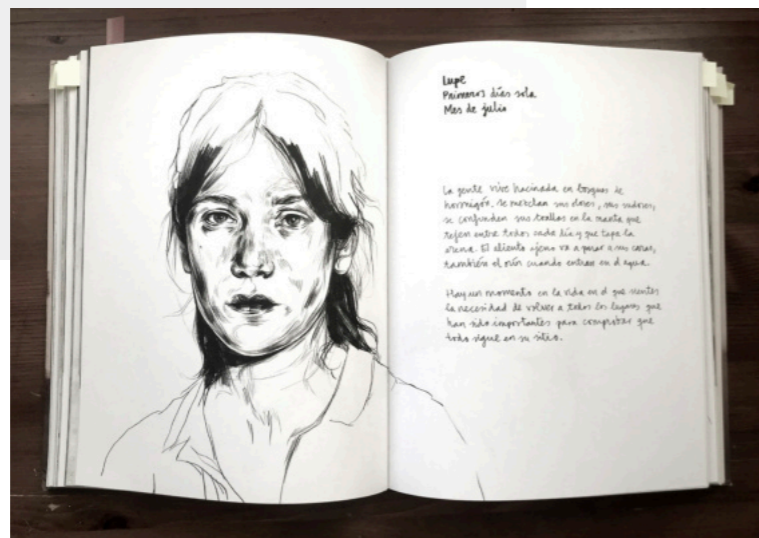 Lupe
Primeros días sola
Mes de julio
La gente vive hacinada en bosques de
hormigón, se mezclan sus olores, sus sudores,
se confunden sus toallas en la manta que
tejen entre todos cada día y que tapa la
arena. El aliento ajeno va a parar a sus caras,
también el orín cuando entran en el agua.
Hay un momento en la vida en el que sientes
la necesidad de volver a todos los lugares que
han sido importantes para comprobar que
todo sigue en su sitio.